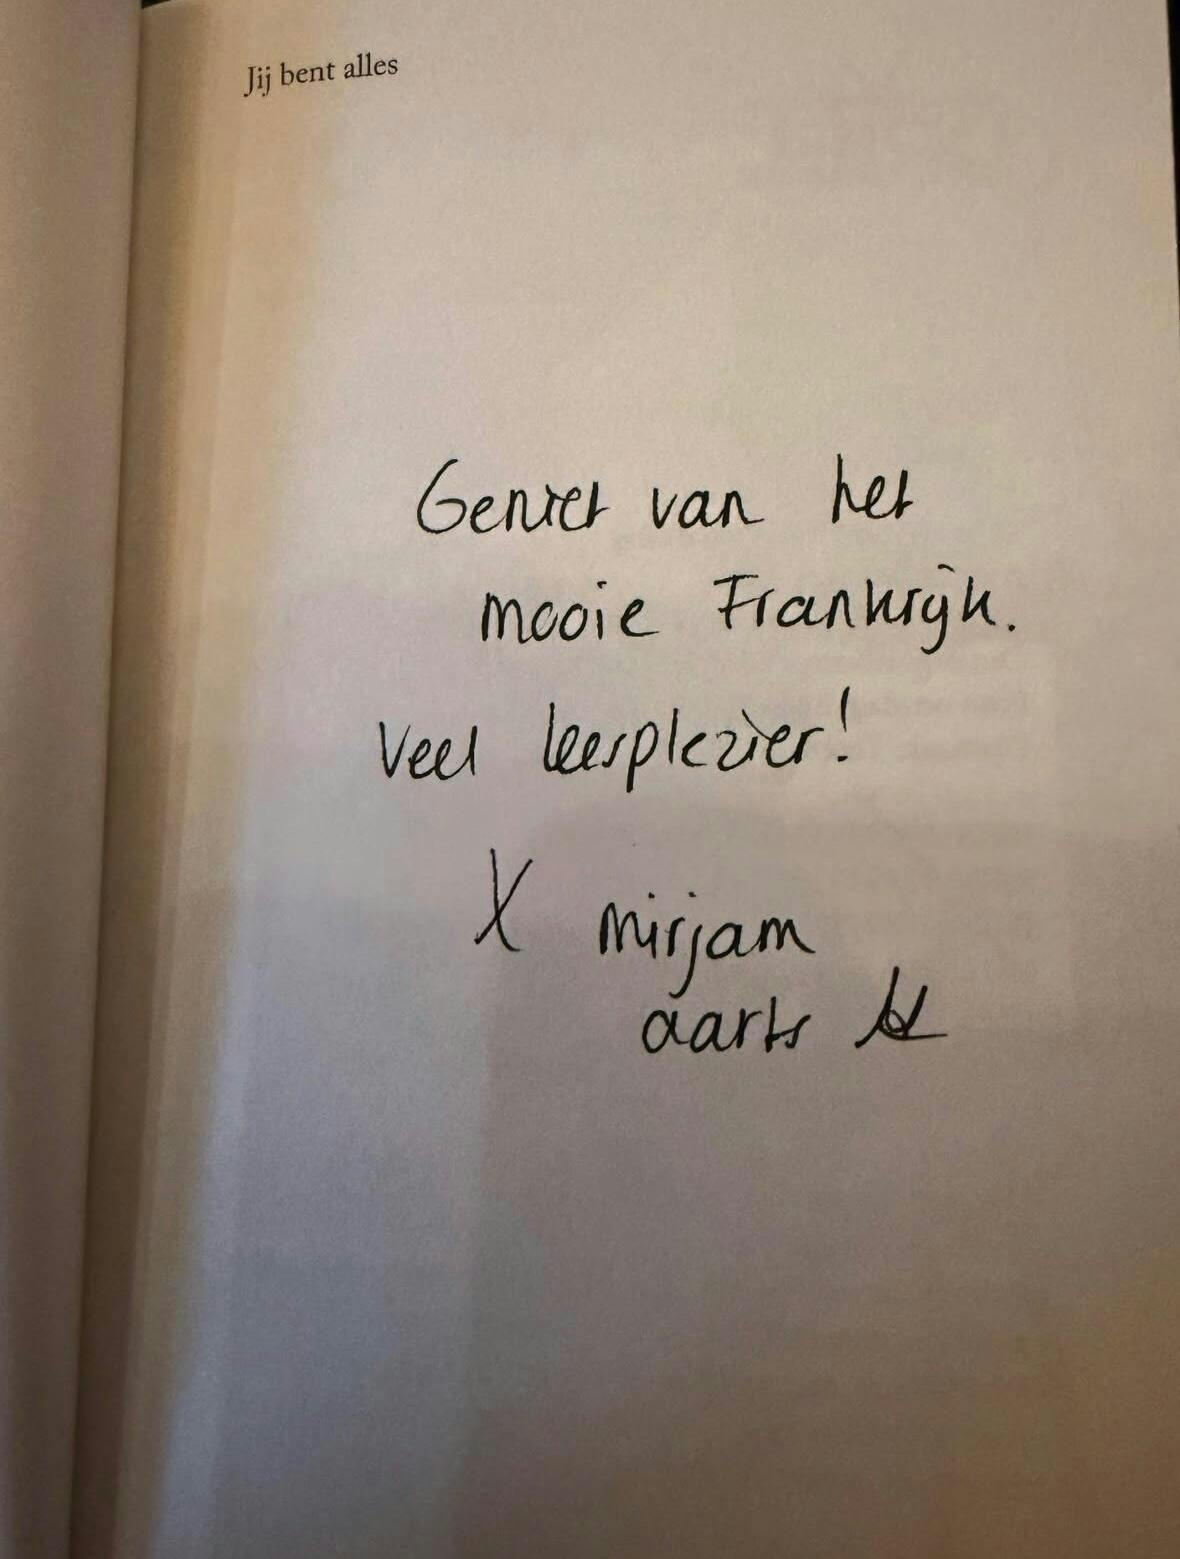 Jij bent alles
Geniet van het
mooie Frankrijk.
Veel leesplezier!
X mirjam
aarts